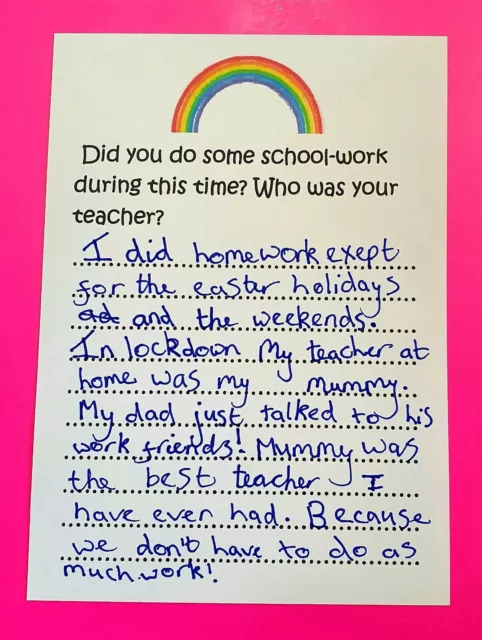 Did you do some school-work
during this time? Who was your
teacher?
I did homework exept
for the eastar holidays
ad and the weekends.
In lockdown My teacher at
home was my mummy.
My dad just talked to his
work friends! Mummy was
the best teacher I
have ever had. Because
we don't have to do as
much work!